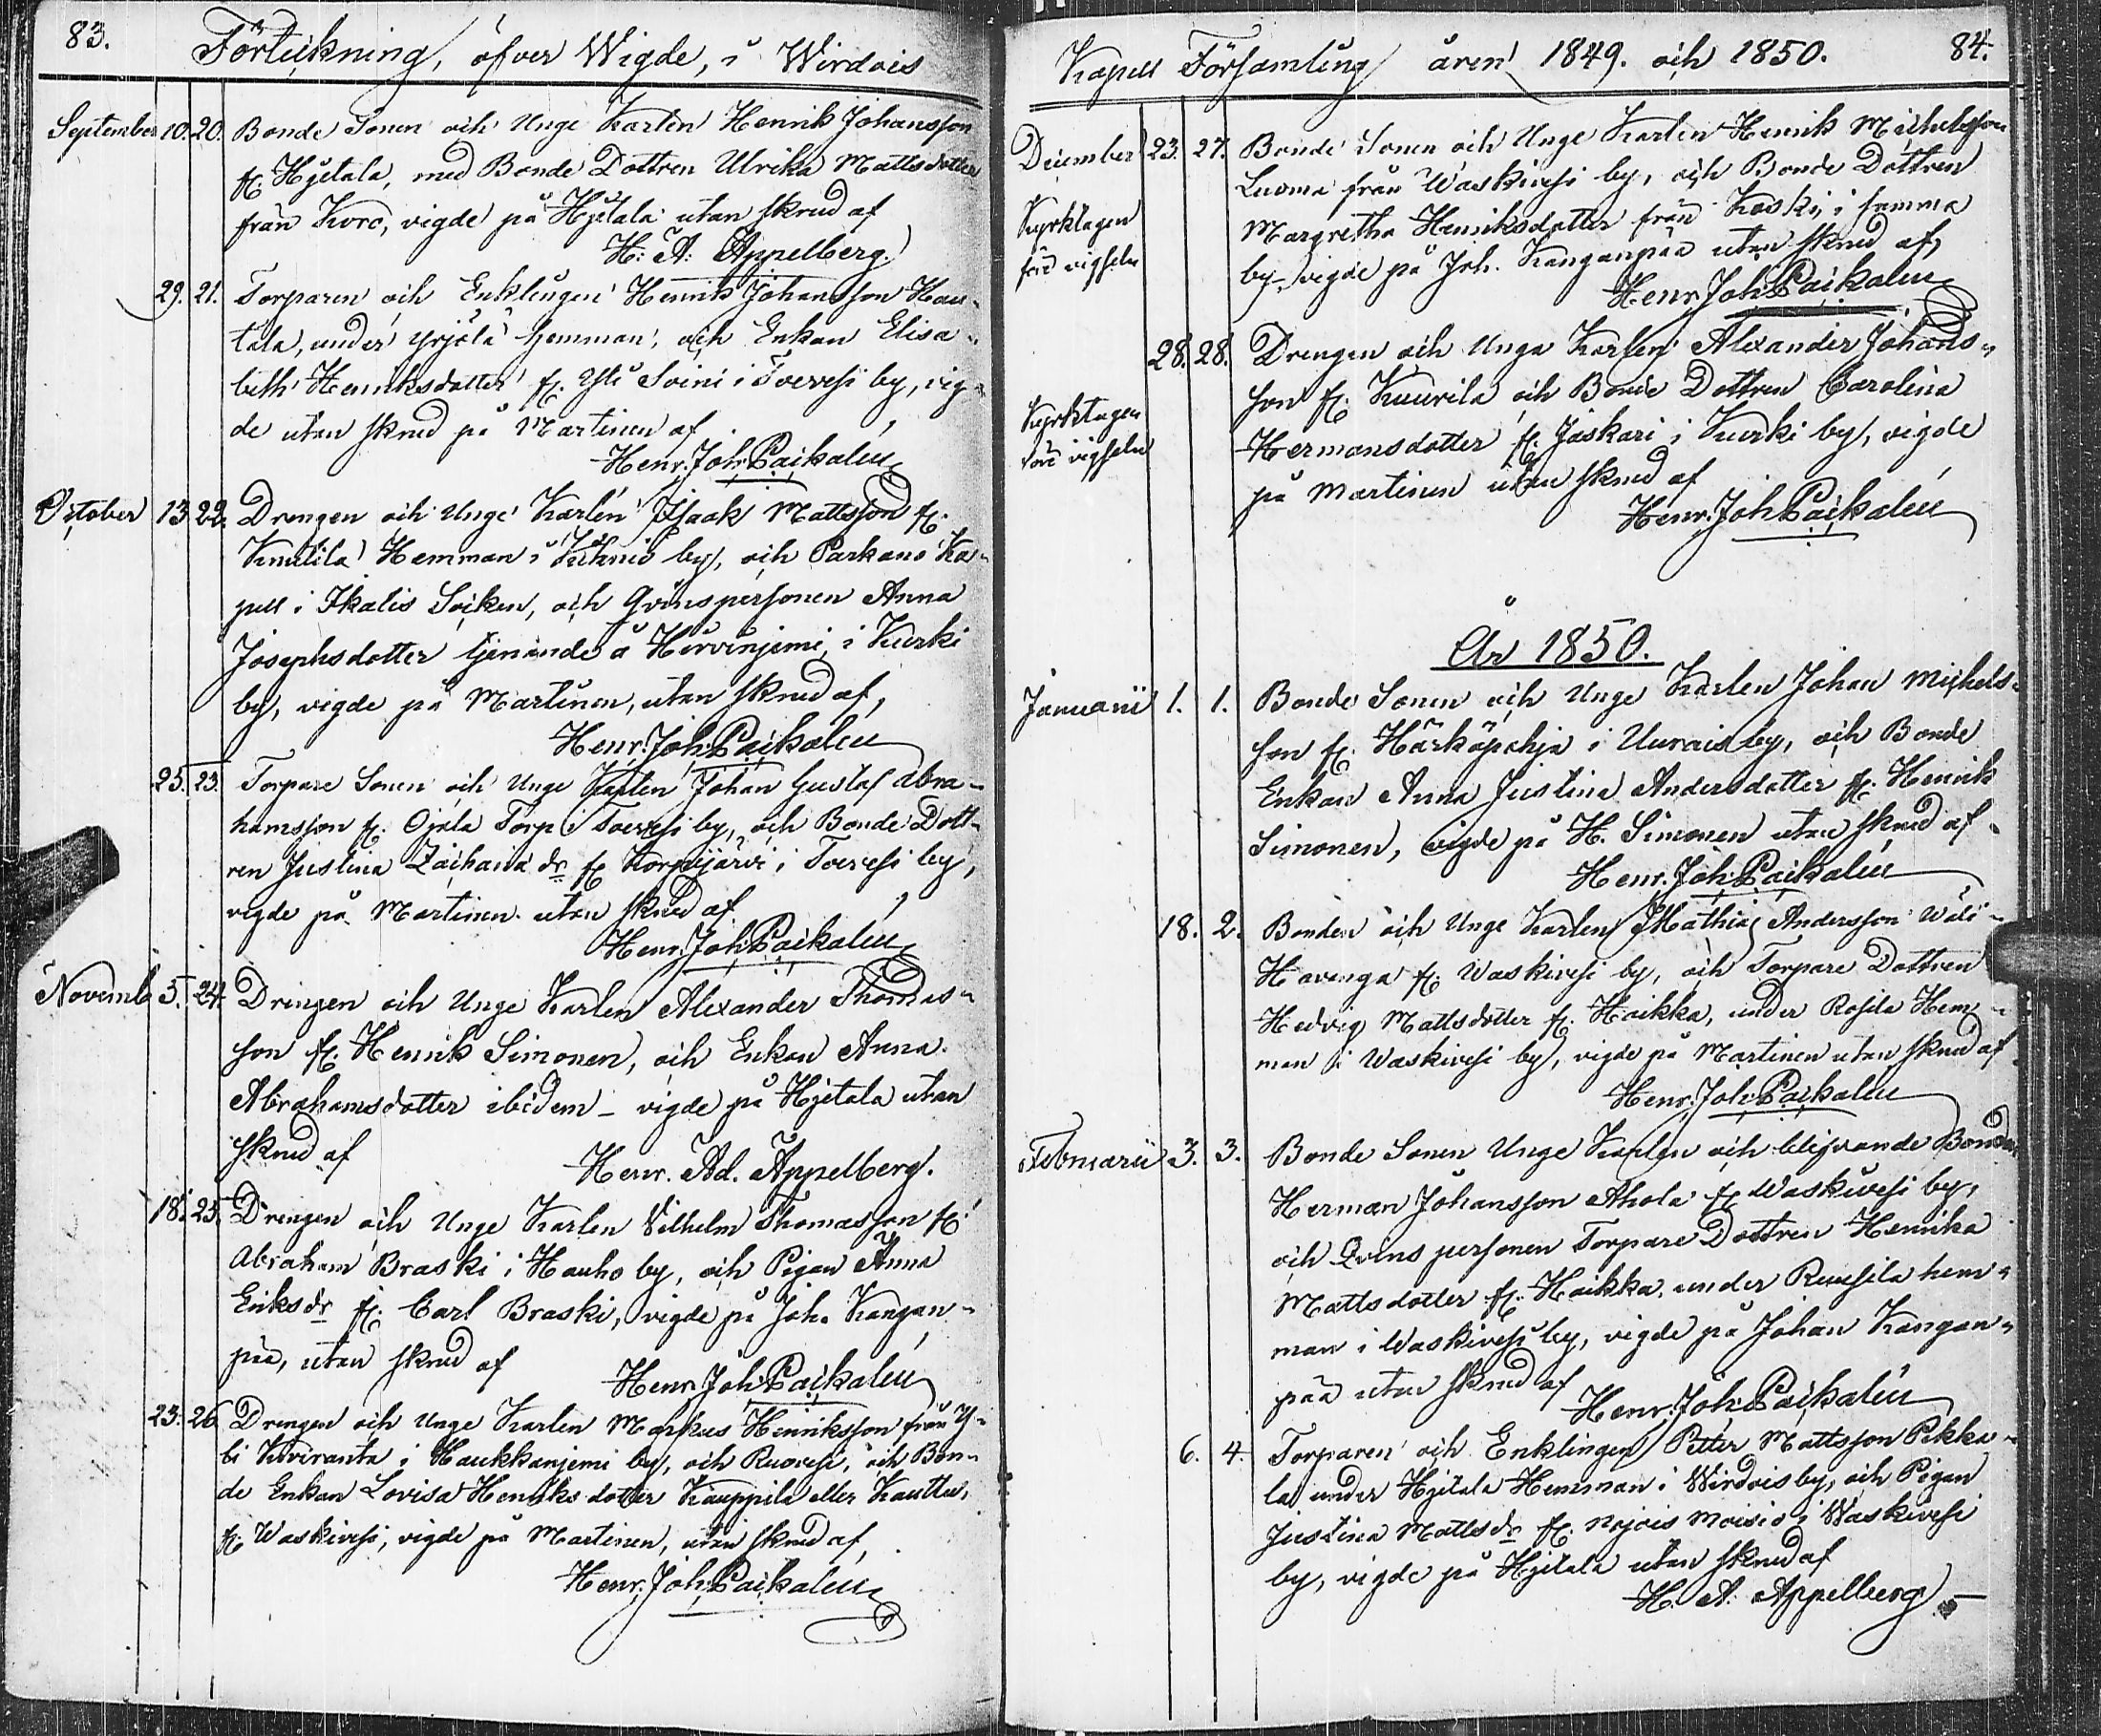 83.
Förteckning, öfver Wigde, i Wirdois
September 10. 20. Bonde Sonen och Unge Karlen Henrik Johansson
fr. Hjitala, med Bonde Dottren Ulrika Mattsdotter
från Koro, vigde på Hjitala utan skrud af
H: A: Appelberg.
29. 21. Torparen och Enklingen Henrik Johansson Hau-
tala, under Yrjälä hemman, och Enkan Elisa-
beth Henriksdotter fr. Yli Soini i Toevesi by, vig-
de utan skrud på Martinen af
Henr. Joh. Paikalén
October 13 22. Drengen och Unge Karlen Isaak Mattsson fr.
Knutila Hemman i Kihniö by, och Parkano Ka-
pell i Ikalis Socken, och Qvinspersonen Anna
Josephsdotter tjenande å Hirvinjemi, i Kurki
by, vigde på Martinen, utan skrud af,
Henr. Joh. Paikalén
25. 23. Torpare Sonen och Unge Karlen Johan Gustaf Abra-
hamsson fr. Ojala Torp i Toevesi by, och Bonde Dott-
ren Justina Zachariæ dr fr. Korpijärvi i Toevesi by,
vigde på Martinen utan skrud af
Henr. Joh. Paikalén
Novemb. 5. 24. Drengen och Unge Karlen Alexander Thomas-
son fr. Henrik Simonen, och Enkan Anna
Abrahamsdotter ibidem – vigde på Hjitala utan
skrud af
Henr. Ad. Appelberg.
18. 25. Drengen och Unge Karlen Vilhelm Thomasson fr.
Abraham Braski i Hauho by, och Pigan Anna
Eriksdr fr. Carl Braski, vigde på Joh. Kangan-
pää, utan skrud af
Henr. Joh. Paikalén
23. 26. Drengen och Unge Karlen Markus Henriksson från Y-
li Kiviranta i Haukkanjemi by, och Ruovesi, och Bon-
de Enkan Lovisa Henriksdotter Kauppila eller Kauttu,
fr. Waskivesi, vigde på Martinen, utan skrud af,
Henr. Joh. Paikalén
Kapell Församling åren 1849. och 1850. 84.
December 23. 27. Bonde Sonen och Unge Karlen Henrik Michelsson
Luoma från Waskivesi by, och Bonde Dottren
Kyrktagen Margretha Henriksdotter från Koski, i samma
före vigseln by, vigde på Joh. Kanganpää utan skrud af,
Henr. Joh. Paikalén
28. 28. Drengen och Unga Karlen Alexander Johans-
son fr. Kuurila och Bonde Dottren Carolina
Kyrktagen Hermansdotter fr. Jaskari i Kurki by, vigde
före vigseln på Martinen utan skrud af
Henr. Joh. Paikalén
År 1850.
Januarii 1. 1. Bonde Sonen och Unge Karlen Johan Michels-
son fr. Härköpohja i Uurais by, och Bonde
Enkan Anna Justina Andersdotter fr. Henrik
Simonen, vigde på H. Simonen utan skrud af
Henr. Joh. Paikalén
18. 2. Bonden och Unge Karlen Mathias Andersson Wäli-
Havanga fr. Waskivesi by, och Torpare Dottren
Hedvig Mattsdotter fr. Haikka, under Rosila Hem-
man i Waskivesi by, vigde på Martinen utan skrud af
Henr. Joh. Paikalén
Februarii 3. 3. Bonde Sonen Unge Karlen och blifvande Bonden
Herman Johansson Ahola fr. Waskivesi by,
och Qvinspersonen Torpare Dottren Henrika
Mattsdotter fr. Haikka, under Ruusila hem-
man i Waskivesi by, vigde på Johan Kangan-
pää utan skrud af
Henr. Joh. Paikalén
6. 4. Torparen och Enklingen Petter Mattsson Pekka-
la under Hjitala Hemman i Wirdois by, och Pigan
Justina Mattsdr fr. Moisio i Waskivesi
by, vigde på Hjitala utan skrud af
H. A. Appelberg –